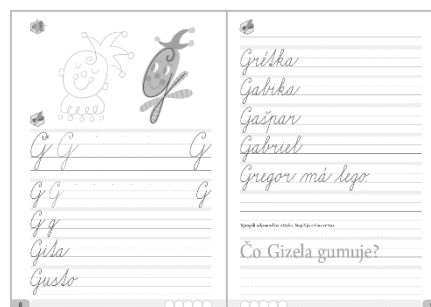 G G G
G G G
G g
Gita
Gusto
8
Grétka
Gabika
Gašpar
Gabriel
Gregor má lego.
Čo Gizela gumuje?